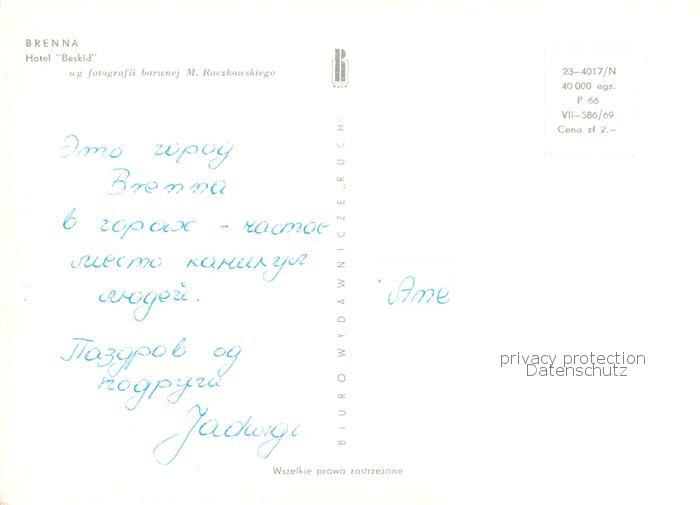 BRENNA
Hotel "Beskid"
wg fotografii barwnej M. Raczkowskiego
RUCH
23-4017/N
40 000 egz.
P 66
VII-586/69
Cena zł 2.-
Это город
Brenna
в горах - частое
место каникул
людей.
Паздров од
подруги
Jadwigi
BIURO WYDAWNICZE „RUCH"
Ane
privacy protection
Datenschutz
Wszelkie prawa zastrzeżone